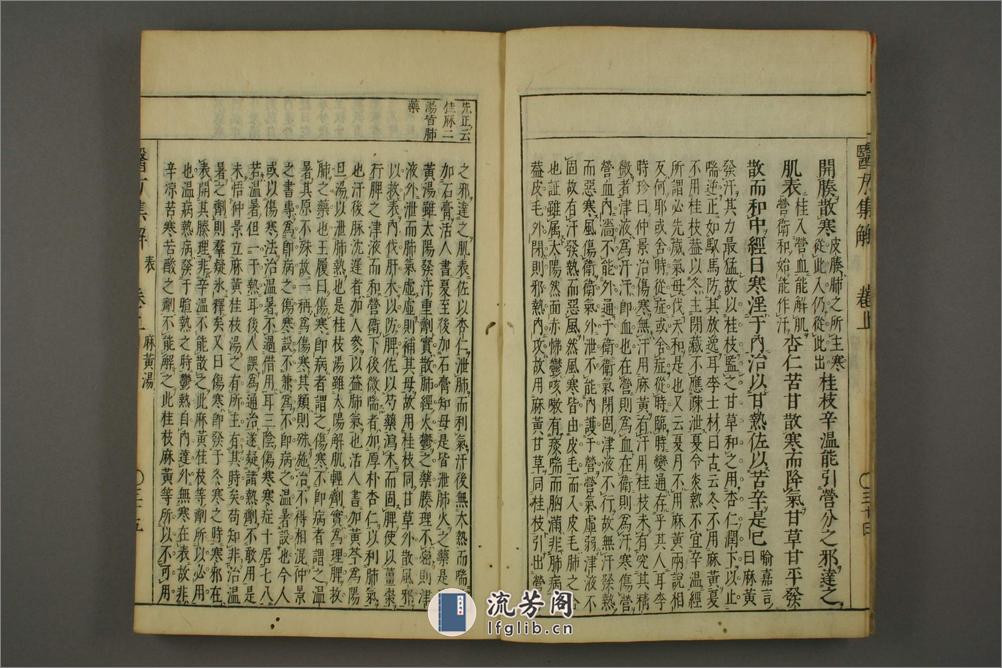 醫方集解 卷上 三十四
開腠散寒皮腠肺之所主寒從此入仍從此出桂枝辛溫能引營分之邪達之
肌表桂入營血能解肌營衛和始能作汗杏仁苦甘散寒而降氣甘草甘平發
散而和中經曰寒淫于內治以甘熱佐以苦辛是已喻嘉言曰麻黃
發汗其力最猛故以桂枝監之甘草和之用杏仁潤下以止
喘逆正如馭馬防其放逸耳李士材曰古云冬不用麻黃夏
不用桂枝葢以冬主閉藏不應疎泄夏令炎熱不宜辛溫經
所謂必先歲氣毋伐天和是也又云夏月不用麻黃兩說相
反何耶或舍時從症或舍症從時臨時變通存乎其人耳李
時珍曰仲景治傷寒無汗用麻黃有汗用桂枝未有究其精
微者津液為汗汗即血也在營則為血在衛則為汗寒傷營
營血內濇不能外通于衛衛氣閉固津液不行故無汗發熱
而惡寒風傷衛衛氣外泄不能內護于營營氣虛弱津液不
固故有汗發熱而惡風然風寒皆由皮毛而入皮毛肺之合
也証雖屬太陽然面赤怫鬱咳嗽痰喘而胸滿非肺病乎
葢皮毛外閉則邪熱內攻故用麻黃甘草同桂枝引出營分
之邪達之肌表佐以杏仁泄肺而利氣汗後無大熱而喘者
加石膏活人書夏至後加石膏知母是皆泄肺火之藥是麻
黃湯雖太陽發汗重劑實散肺經火鬱之藥腠理不密則津
液外泄而肺氣虛虛則補其母故用桂枝同甘草外散風邪
以救表內伐肝木以防脾佐以芍藥瀉木而固脾使以薑棗
行脾之津液而和營衛下後微喘者加厚朴杏仁以利肺氣
也汗後脉沈遲者加人參以益肺氣也活人書加黃芩為陽
旦湯以泄肺熱也是桂枝湯雖太陽解肌輕劑實為理脾救
肺之藥也王履曰傷寒即病者謂之傷寒不即病者謂之溫
暑其原不殊故一稱為傷寒其類則殊施治不得相混仲景
之書專為即病之傷寒設不兼為不即病之溫暑設也今人
或以傷寒法治溫暑不過借用耳三陰傷寒寒症十居七八
若溫暑但一于熱耳後人誤為通治遂疑諸熱劑不敢用是
未悟仲景立麻黃桂枝湯之有所主有其時矣苟知非治溫
暑之劑則羣疑氷釋矣又曰傷寒即發于冬寒之時寒邪在
表開其腠理非辛溫不能散之此麻黃桂枝等劑所以必用
也溫病熱病發于暄熱之時鬱熱自內達外無寒在表故非
辛涼苦寒苦酸之劑不能解之此桂枝麻黃等所以不可用
先正云
桂麻二
湯皆肺
藥
醫方集解 表 卷上 麻黃湯 三十五
流芳阁
lfglib.cn